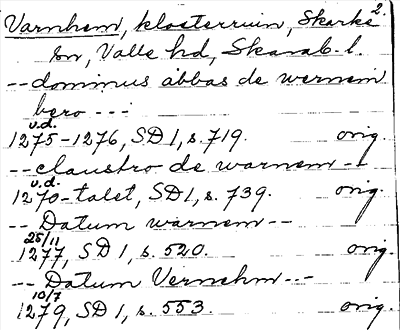 Varnhem, klosterruin, Skarke 2.
sn, Valle hd, Skarab. l.
-- dominus abbas de wernem
bero ---
u.d.
1275-1276, SD 1, s. 719. orig.
-- claustro de warnem --
u.d.
1270-talet, SD 1, s. 739. orig.
-- Datum warnem --
25/11
1277, SD 1, s. 520. orig.
-- Datum Vernehm --
10/7
1279, SD 1, s. 553. orig.